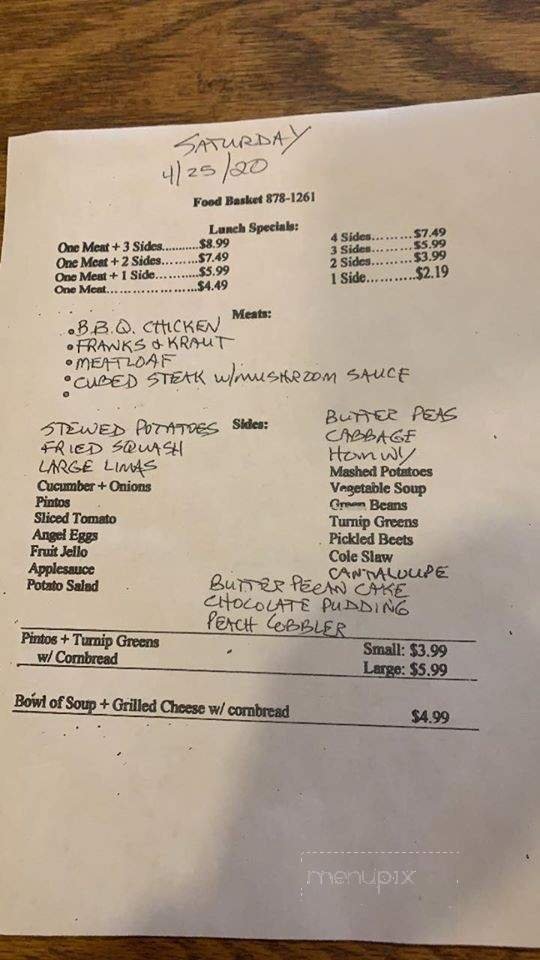 SATURDAY
4/25/20
Food Basket 878-1261
Lunch Specials:
One Meat + 3 Sides...........$8.99
One Meat + 2 Sides.........$7.49
One Meat + 1 Side............$5.99
One Meat.....................$4.49
4 Sides.........$7.49
3 Sides.........$5.99
2 Sides.........$3.99
1 Side...........$2.19
Meats:
• B.B.Q. CHICKEN
• FRANKS & KRAUT
• MEATLOAF
• CUBED STEAK W/MUSHROOM SAUCE
Sides:
STEWED POTATOES
FRIED SQUASH
LARGE LIMAS
Cucumber + Onions
Pintos
Sliced Tomato
Angel Eggs
Fruit Jello
Applesauce
Potato Salad
BUTTER PEAS
CABBAGE
HOMINY
Mashed Potatoes
Vegetable Soup
Green Beans
Turnip Greens
Pickled Beets
Cole Slaw
CANTALOUPE
BUTTER PECAN CAKE
CHOCOLATE PUDDING
PEACH COBBLER
Pintos + Turnip Greens
w/ Cornbread
Small: $3.99
Large: $5.99
Bowl of Soup + Grilled Cheese w/ cornbread
$4.99
menupix